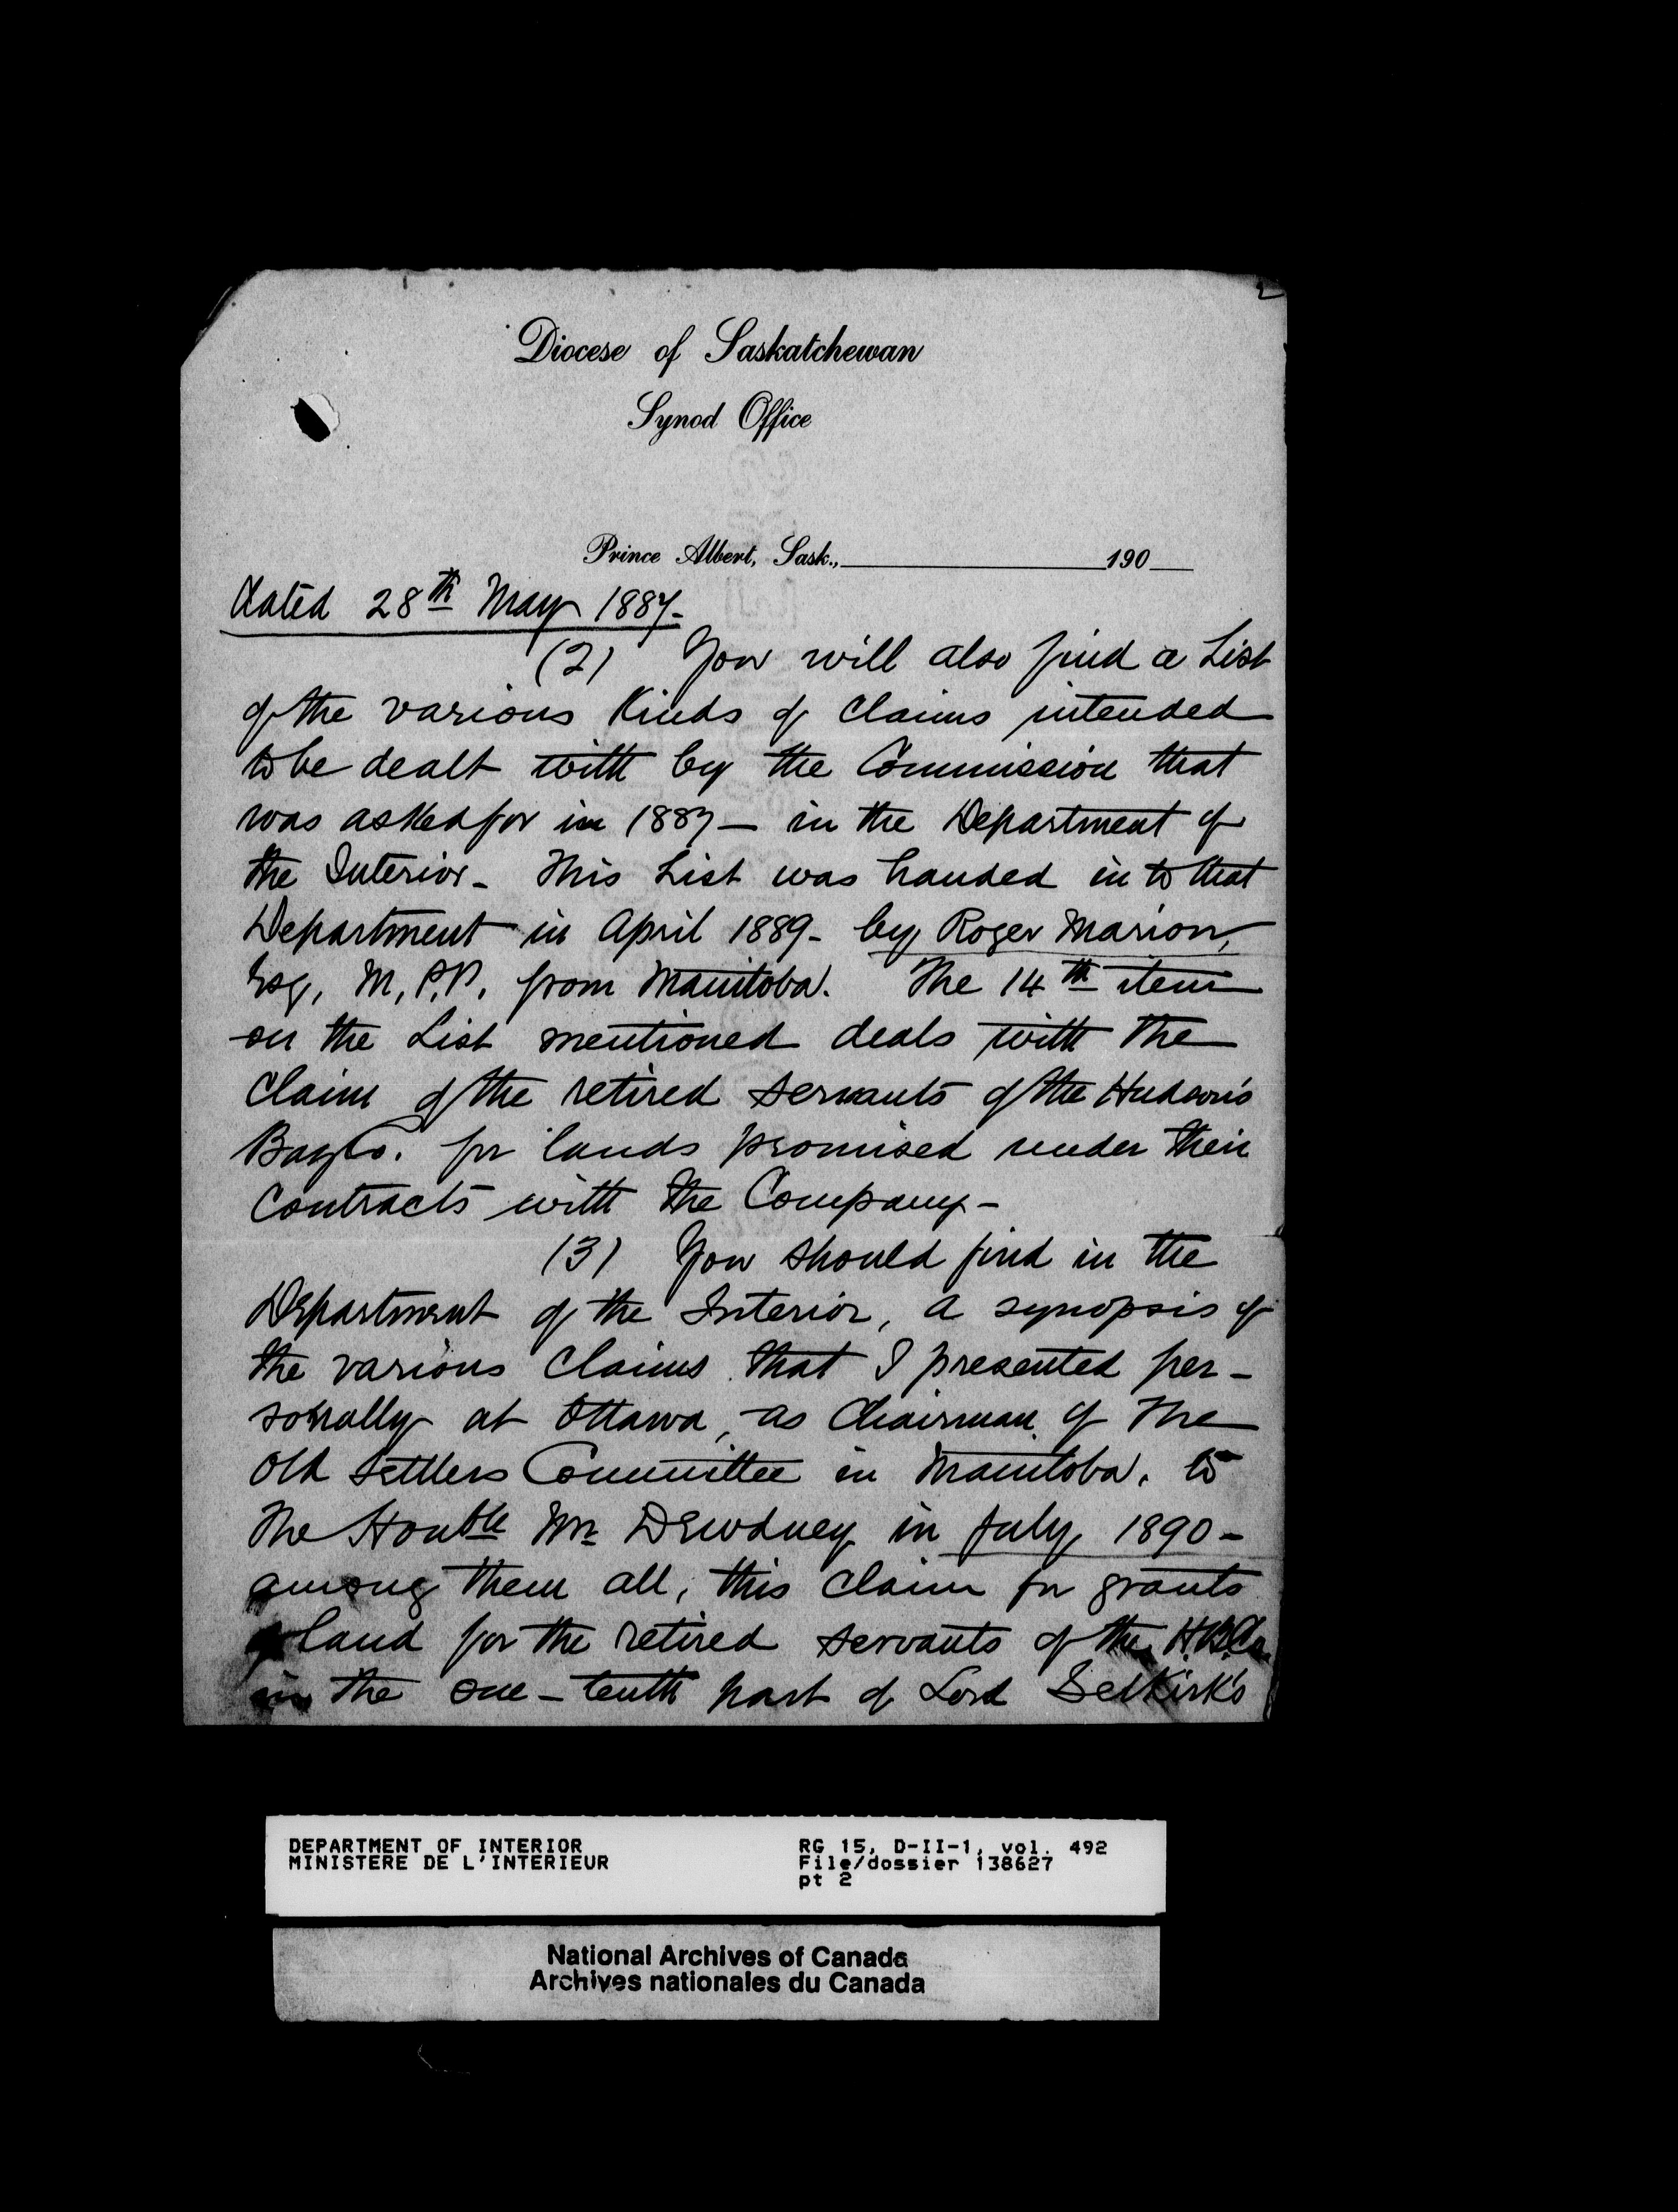 2
Diocese of Saskatchewan
Synod Office
Prince Albert, Sask., 190
dated 28th May 1887-
(2) You will also find a List
of the various Kinds of Claims intended
to be dealt with by the Commission that
was asked for in 1887 - in the Department of
the Interior - This List was handed in to that
Department in April 1889 - by Roger Marion,
Esq, M.P.P. from Manitoba. The 14th item
on the List mentioned deals with the
Claim of the retired servants of the Hudson's
Bay Co. for lands promised under their
Contracts with the Company -
(3) You should find in the
Department of the Interior, a synopsis of
the various Claims that I presented per-
sonally at Ottawa, as Chairman of The
Old Settlers Committee in Manitoba, to
The Honble Mr Dewdney in July, 1890 -
among them all, this claim for grants
of land for the retired servants of the H.B.Co.
in the one-tenth part of Lord Selkirk's
DEPARTMENT OF INTERIOR
MINISTERE DE L'INTERIEUR
RG 15, D-II-1, vol. 492
File/dossier 138627
pt 2
National Archives of Canada
Archives nationales du Canada